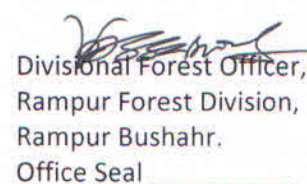 Divisional Forest Officer,
Rampur Forest Division,
Rampur Bushahr.
Office Seal